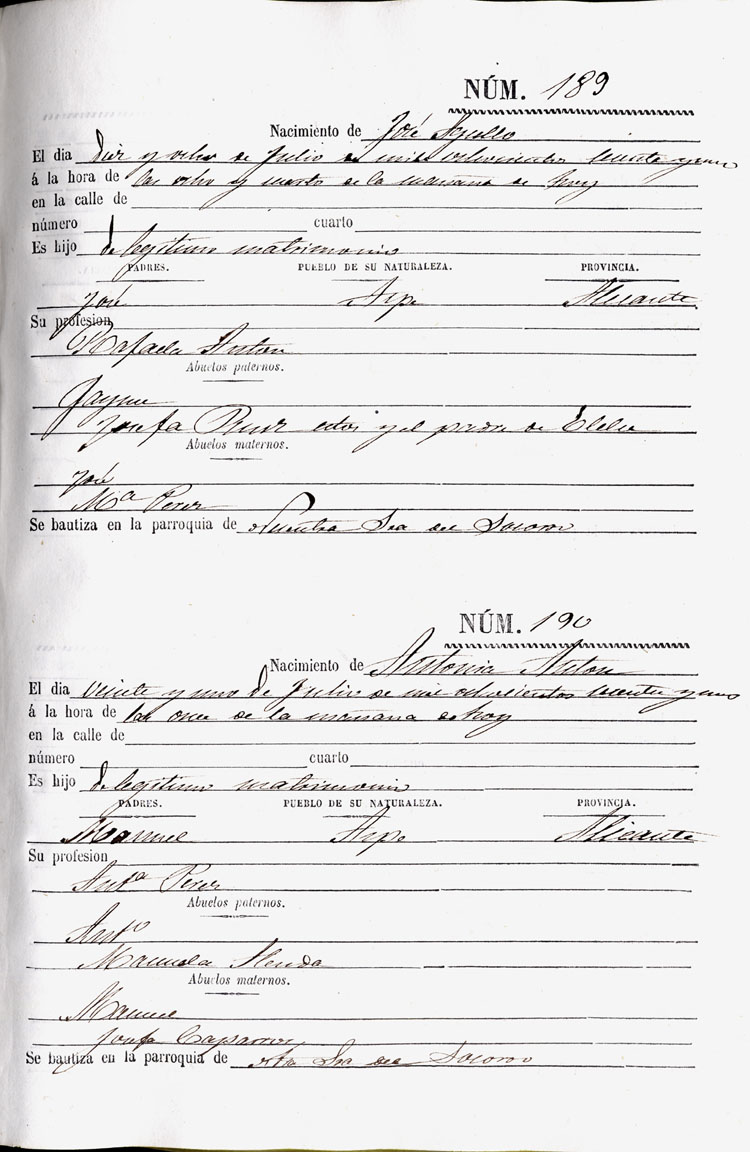 NÚM. 189
Nacimiento de José Agullo
El dia diez y ocho de Julio de mil ochocientos sesenta y uno
á la hora de las ocho y cuarto de la mañana de hoy
en la calle de
número cuarto
Es hijo de legitimo matrimonio
PADRES. PUEBLO DE SU NATURALEZA. PROVINCIA.
José Aspe Alicante
Su profesion
Rafaela Anton
Abuelos paternos.
Jayme
Josefa Ruiz estos y el padre de Elche
Abuelos maternos.
José
Mª Perez
Se bautiza en la parroquia de Nuestra Sra del Socorro
NÚM. 190
Nacimiento de Antonia Anton
El dia veinte y uno de Julio de mil ochocientos sesenta y uno
á la hora de las once de la mañana de hoy
en la calle de
número cuarto
Es hijo de legitimo matrimonio
PADRES. PUEBLO DE SU NATURALEZA. PROVINCIA.
Manuel Aspe Alicante
Su profesion
Antª Perez
Abuelos paternos.
Antº
Manuela Alenda
Abuelos maternos.
Manuel
Josefa Caparros
Se bautiza en la parroquia de Ntra Sra del Socorro